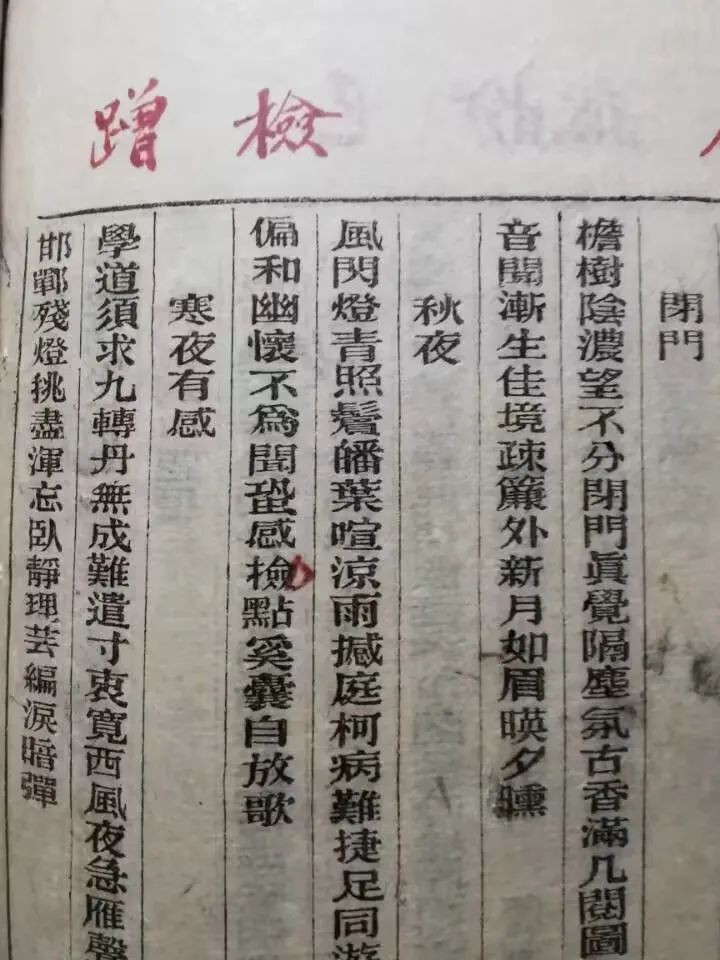 檢
蹭
閉門
檐樹陰濃望不分閉門眞覺隔塵氛古香滿几閱圖
音聞漸生佳境疎簾外新月如眉暎夕曛
秋夜
風閃燈青照鬢皤葉喧涼雨撼庭柯病難捷足同游
偏和幽懷不爲聞蛩感撿點奚囊自放歌
寒夜有感
學道須求九轉丹無成難遣寸衷寬西風夜急雁聲
邯鄲殘燈挑盡渾忘臥靜理芸編淚暗彈